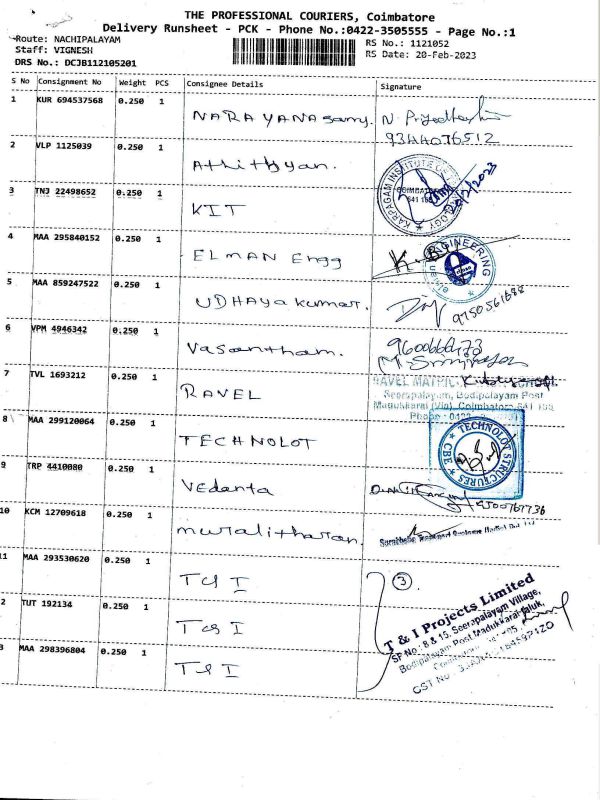 THE PROFESSIONAL COURIERS, Coimbatore
Delivery Runsheet - PCK - Phone No.:0422-3505555 - Page No.:1
Route: NACHIPALAYAM
Staff: VIGNESH
DRS No.: DCJB112105201
RS No.: 1121052
RS Date: 20-Feb-2023
S No Consignment No Weight PCS Consignee Details Signature
1 KUR 694537568 0.250 1 NARAYANAsamy.
2 VLP 1125039 0.250 1 Athithyan.
3 TNJ 22498652 0.250 1 KIT
KARPAGAM INSTITUTE OF
COIMBATORE
641 105
20/2/2023
4 MAA 295840152 0.250 1 ELMAN Engg
ENGINEERING
5 MAA 859247522 0.250 1 UDHAYakumar.
9750561688
6 VPM 4946342 0.250 1 Vasantham.
7 TVL 1693212 0.250 1 RAVEL
RAVEL MATRIC
Seerapalayam, Bodipalayam Post
Madukkarai (Via), Coimbatore 641 105
Phone: 0422
8 MAA 299120064 0.250 1 TECHNOLOT
TECHNOLOT STRUCTURES
CBE
9 TRP 4410080 0.250 1 Vedanta
10 KCM 12709618 0.250 1 muralitharan.
11 MAA 293530620 0.250 1 T&I
3
T & I Projects Limited
SF No: 8 & 15, Seerapalayam Village,
Bodipalayam Post, Madukkarai Taluk,
GST No
2 TUT 192134 0.250 1 T&I
3 MAA 298396804 0.250 1 T&I